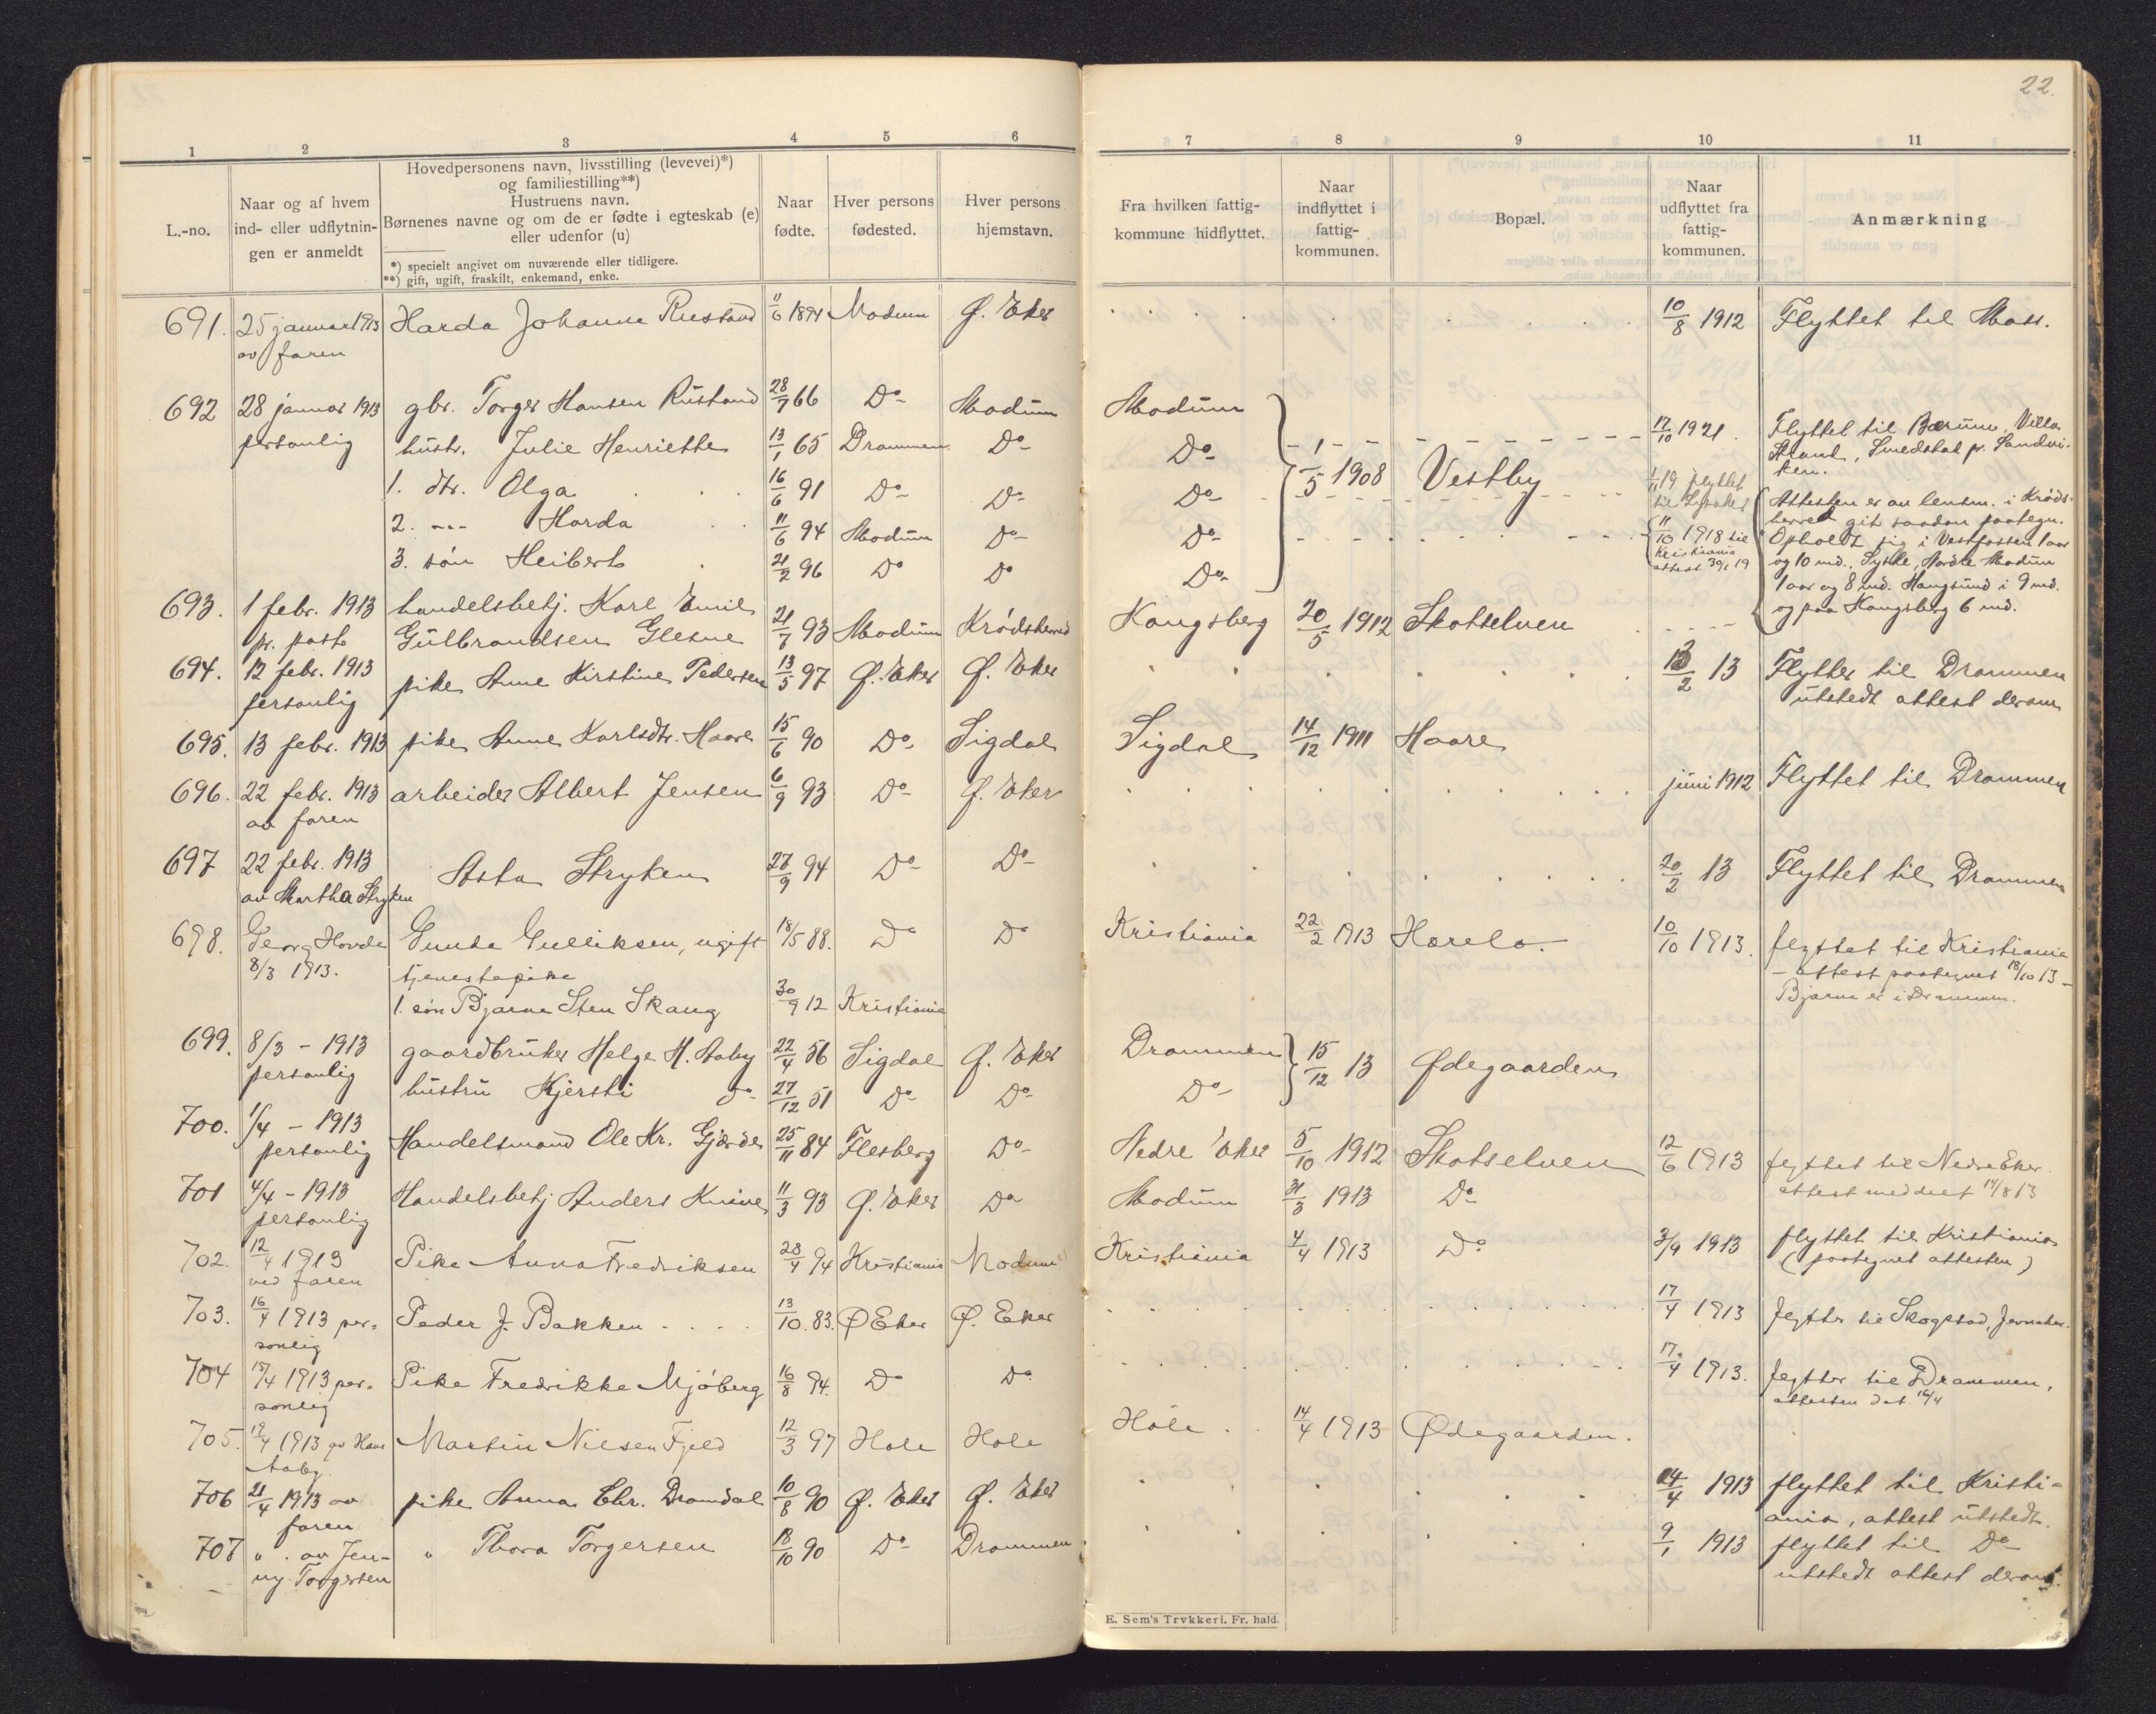 22.
1 2 3 4 5 6
7 8 9 10 11
L.-no.
Naar og af hvem
ind- eller udflytnin-
gen er anmeldt
Hovedpersonens navn, livsstilling (levevei)*)
og familiestilling**)
Hustruens navn.
Børnenes navne og om de er fødte i egteskab (e)
eller udenfor (u)
*) specielt angivet om nuværende eller tidligere.
**) gift, ugift, fraskilt, enkemand, enke.
Naar
fødte.
Hver persons
fødested.
Hver persons
hjemstavn.
Fra hvilken fattig-
kommune hidflyttet.
Naar
indflyttet i
fattig-
kommunen.
Bopæl.
Naar
udflyttet fra
fattig-
kommunen.
Anmærkning
691. 25 januar 1913 Harda Johanne Rustand 11/6 1894 Modum Ø. Eker 10/8 1912 Flyttet til Moss.
av faren
692 28 januar 1913 gbr. Torger Hansen Rustand 28/7 66 Do Modum Modum
personlig hustr. Julie Henriette 13/1 65 Drammen Do Do 17/10 1921. Flyttet til Bærum, Villa
1. dtr. Olga 16/6 91 Do Do Do 1/5 1908 Vestby 1/11 19 flyttet
2. -"- Harda 11/6 94 Modum Do Do 11/10 1918 til
Kristiania
attest 30/1 19
3. søn Heibert 21/2 96 Do Do Do
693. 1 febr. 1913 handelsbetj. Karl Emil
pr. post Gulbrandsen Glesne 21/7 93 Modum Krødsherred Kongsberg 20/5 1912 Skotselven
Attesten er av lensm. i Krøds-
herred git saadan paategn.
Opholdt sig i Vestfossen 1 aar
og 10 md., Nordre Modum
1 aar og 8 md. Haugsund i 9 md.
og paa Kongsberg 6 md.
694. 12 febr. 1913 pike Anne Kirstine Pedersen 13/5 97 Ø. Eker Ø. Eker 13/2 13 Flytter til Drammen
personlig utstedt attest derom
695. 13 febr. 1913 pike Anne Karlsdtr. Haare 15/6 90 Do Sigdal Sigdal 14/12 1911 Haare
696. 22 febr. 1913 arbeider Albert Jensen 6/9 93 Do Ø. Eker juni 1912 Flyttet til Drammen
av faren
697 22 febr. 1913 Asta Stryken 27/9 94 Do Do 20/2 13 Flyttet til Drammen
av Martha Stryken
698. Georg Hovde Gunda Gulliksen, ugift 18/5 88. Do Do Kristiania 22/2 1913 Horelo. 10/10 1913. flyttet til Kristiania
8/3 1913. tjenestepike - attest paategnet 13/10 13 -
1. søn Bjarne Sten Skaug 30/9 12 Kristiania Bjarne er i Drammen.
699. 8/3 - 1913 gaardbruker Helge H. Aaby 22/4 56 Sigdal Ø. Eker Drammen 15/12 13 Ødegaarden
personlig hustru Kjersti Do 27/12 51 Do Do Do
700. 1/4 - 1913
personlig Handelsmand Ole Kr. Gjærde 25/11 84 Flesberg Do Nedre Eker 5/10 1912 Skotselven 12/6 1913 flyttet til Nedre Eker.
attest meddelt 14/8 13
701 4/4 - 1913 Handelsbetj Anders Knive 11/3 93 Ø. Eker Do Modum 31/3 1913 Do
personlig
702. 12/4 1913 Pike Anna Fredriksen 28/4 94 Kristiania Modum Kristiania 4/4 1913 Do 3/9 1913 flyttet til Kristiania
ved faren (paategnet attesten)
703. 16/4 1913 per- Peder J. Bakken 13/10. 83. Ø Eker Ø. Eker 17/4 1913 flytter til Skogstad, Jevnaker.
sonlig
704 15/4 1913 per- Pike Fredrikke Mjöberg 16/8 94. Do Do 17/4 1913. flytter til Drammen,
sonlig attesten dat. 16/4
705. 19/4 1913 av Hans Martin Nilsen Fjeld 12/3 97 Hole Hole Hole 14/4 1913 Ødegaarden.
Aaby.
706 21/4 1913 av pike Anna Chr. Dramdal 10/8 90 Ø. Eker Ø. Eker 24/4 1913 flyttet til Kristi-
faren ania, attest utstedt.
707 " . av Jen- " Thora Torgersen 18/10 90 Do Drammen 9/1 1913 flyttet til Do
ny Torgersen utstedt attest derom.
E. Sem's Trykkeri. Fr. hald.